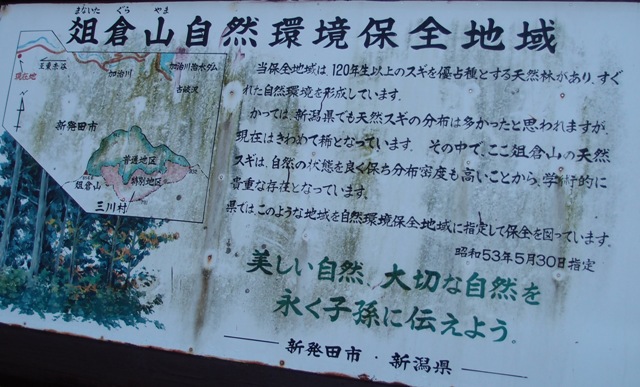 まないた ぐら やま
爼倉山自然環境保全地域
現在地
至東赤谷
加治川
加治川治水ダム
古岐沢
新発田市
N
普通地区
特別地区
爼倉山
三川村
当保全地域は、120年生以上のスギを優占種とする天然林があり、すぐ
れた自然環境を形成しています。
かつては、新潟県でも天然スギの分布は多かったと思われますが、
現在はきわめて稀となっています。その中で、ここ爼倉山の天然
スギは、自然の状態を良く保ち分布密度も高いことから、学術的に
貴重な存在となっています。
県では、このような地域を自然環境保全地域に指定して保全を図っています。
昭和53年5月30日指定
美しい自然、大切な自然を
永く子孫に伝えよう。
新発田市・新潟県